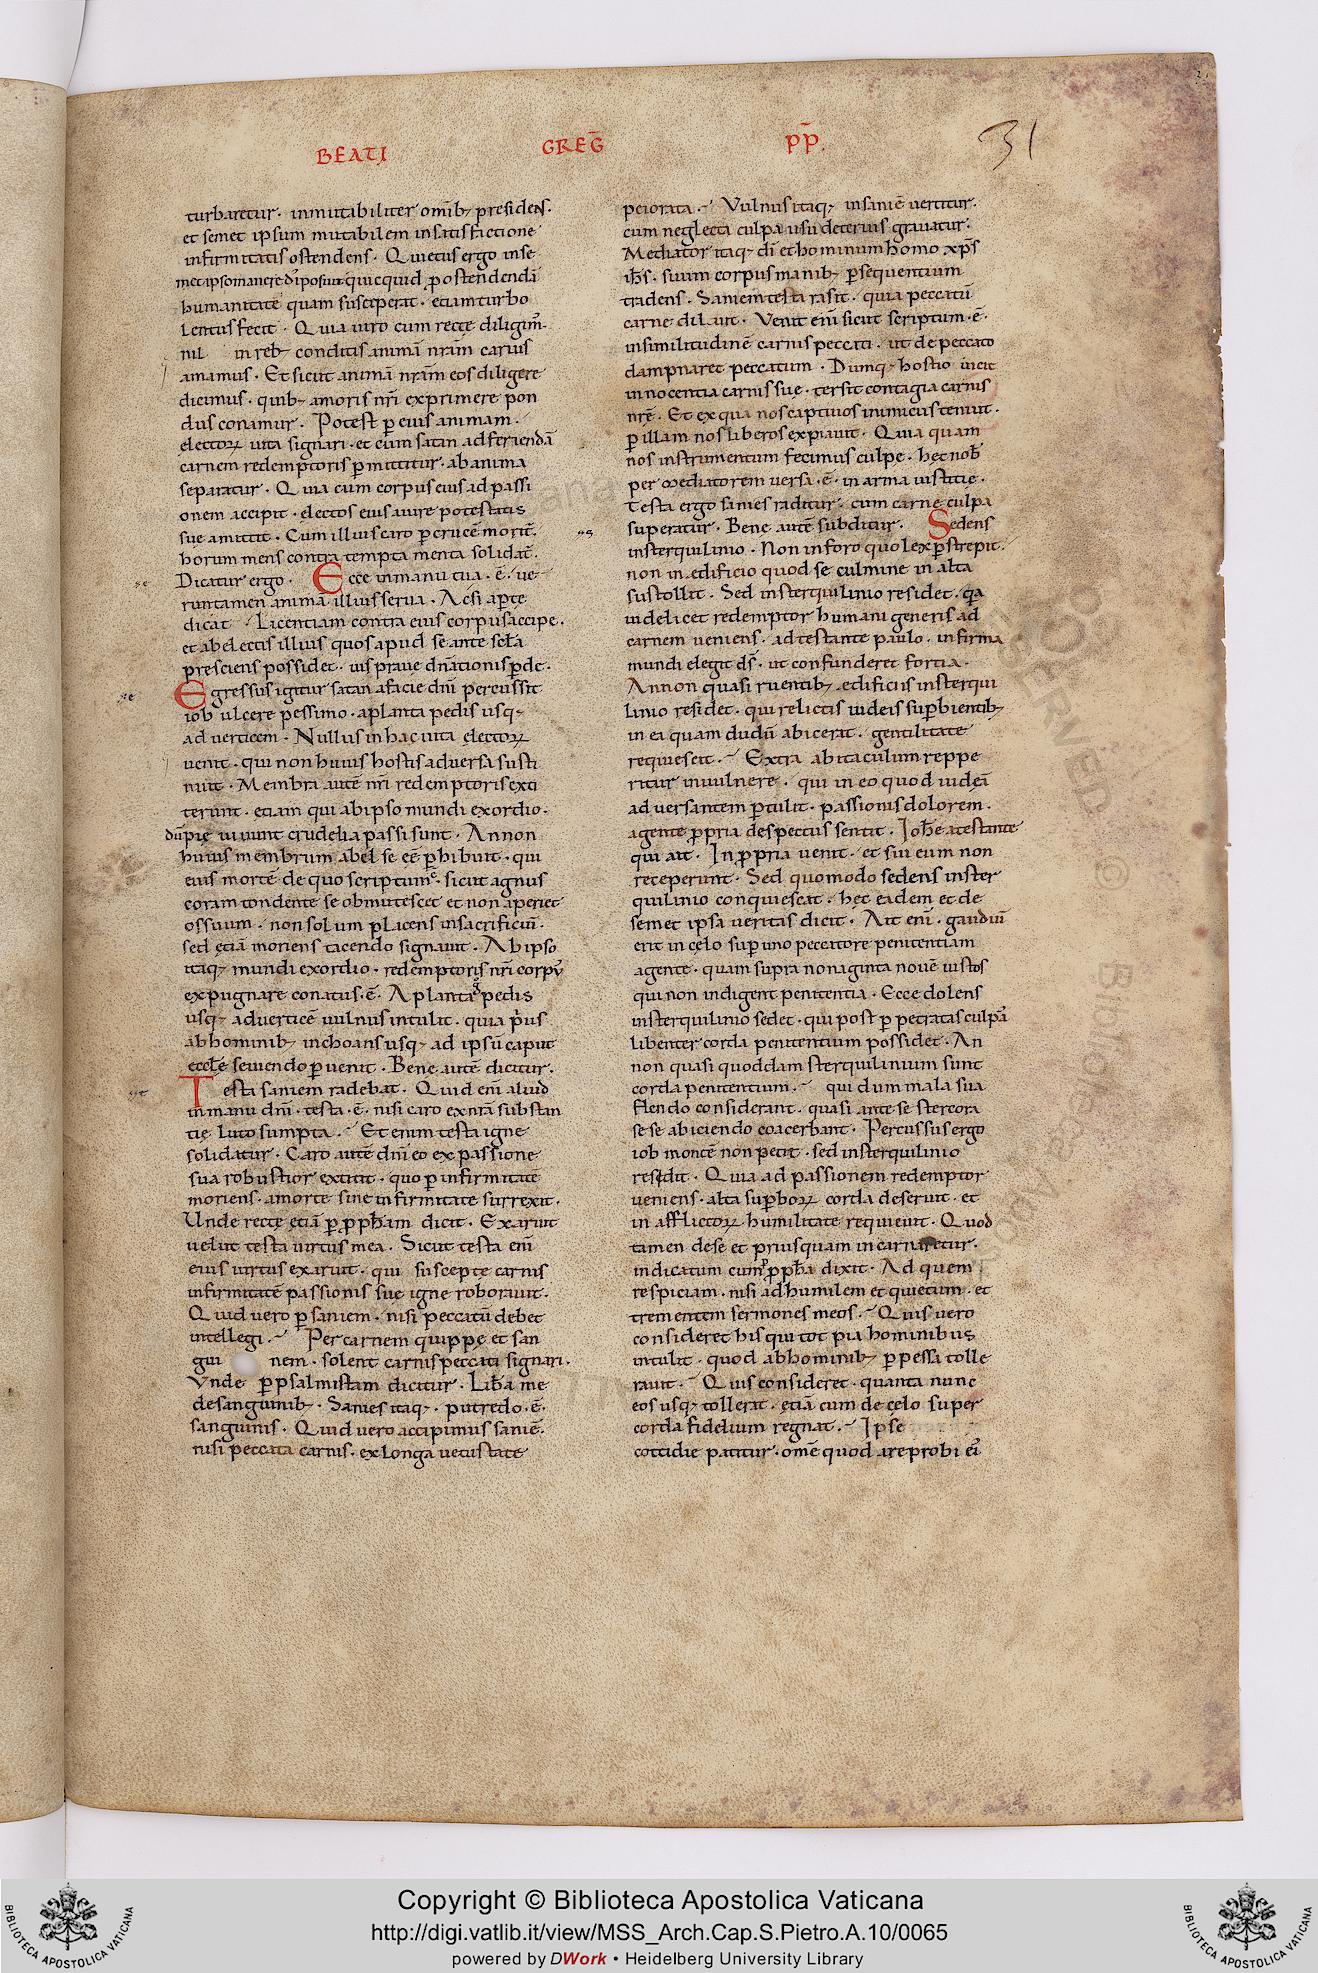 BEATI GREḠ P̄P.
31
turbaretur. inmutabiliter omib; presidens.
et semet ipsum mutabilem in satisfactione
infirmitatis ostendens. Quietus ergo inse
metipso manere disposuit quicquid ꝑ ostendendā
humanitatē quam susceperat. etiam turbo
lentus fecit. Quia uiro cum recte diligim̄.
nil in reb; conditis animā nr̄am carius
amamus. Et sicut animā nr̄am eos diligere
dicimus. quib; amoris nr̄i exprimere pon
dus conamur. Potest ꝑ eius animam.
electoꝝ uita signari. et cum satan ad feriendā
carnem redemptoris ꝑmittitur. ab anima
separatur. Quia cum corpus eius ad passi
onem accipit. electos eius a iure potestatis
sue amittit. Cum illius caro ꝑ crucē morit̄.
horum mens contra temptamenta solidat̄.
Dicatur ergo. Ecce in manu tua .ē. ue
runtamen animā illius serua. Acsi aꝑte
dicat. Licentiam contra eius corpus accipe.
et ab electis illius quos apud se ante scl̄a
presciens possidet. uis praue dn̄ationis ꝑde.
Egressus igitur satan a facie dn̄i percussit
iob ulcere pessimo. a planta pedis usq;
ad uerticem. Nullus in hac uita electoꝝ
uenit. qui non huius hostis aduersa susti
nuit. Membra autē nr̄i redemptoris exti
terunt. etiam qui ab ipso mundi exordio.
dū pie uiuunt crudelia passi sunt. An non
huius membrum abel se eē ꝑhibuit. qui
eius mortē de quo scriptum ē. sicut agnus
coram tondente se obmutescet et non aperiet
os suum. non solum ꝑ placens in sacrificiū.
sed etiā moriens tacendo signauit. Ab ipso
itaq; mundi exordio. redemptoris nr̄i corpus
expugnare conatus .ē. A planta g̊ pedis
usq; ad uerticē uulnus intulit. quia pͥus
ab hominib; inchoans usq; ad ipsū caput
eccl̄e seuiendo ꝑuenit. Bene autē dicitur.
Testa saniem radebat. Quid enī aliud
in manu dn̄i. testa .ē. nisi caro ex nr̄a substan
tie luto sumpta. Etenim testa igne
solidatur. Caro autē dn̄i eo ex passione
sua robustior extitit. quo ꝑ infirmitatē
moriens. a morte sine infirmitate surrexit.
Unde recte etiā ꝑ ꝓph̄am dicit. Exaruit
uelut testa uirtus mea. Sicut testa enī
eius uirtus exaruit. qui suscepte carnis
infirmitatē passionis sue igne roborauit.
Quid vero ꝑ saniem. nisi peccatū debet
intellegi. Per carnem quippe et san
gui nem. solent carnis peccati signari.
Vnde ꝑ psalmistam dicitur. Lib̄a me
de sanguinib;. Sanies itaq;. putredo .ē.
sanguinis. Quid uero accipimus saniē.
nisi peccata carnis. ex longa uetustate
peiorata. Vulnus itaq; in saniē uertitur.
cum neglecta culpa usu deterius grauatur.
Mediator itaq; dī et hominum homo xp̄s
ih̄s. suum corpus manib; ꝑsequentium
tradens. Saniem testa rasit. quia peccatū
carne diluit. Venit enī sicut scriptum .ē.
in similitudinē carnis peccati. ut de peccato
dampnaret peccatum. Dumq; hostio uicit
innocentia carnis sue. tersit contagia carnis
nr̄e. Et ex qua nos captiuos inimicus tenuit.
ꝑ illam nos liberos expiauit. Quia quam
nos instrumentum fecimus culpe. hec nob̄
per mediatorem uersa .ē. in arma iustitie.
Testa ergo sanies raditur. cum carne culpa
superatur. Bene autē subditur. Sedens
in sterquilinio. Non in foro quo lex ꝑstrepit.
non in edificio quod se culmine in alta
sustollit. Sed in sterquilinio residet. qͣ
uidelicet redemptor humani generis ad
carnem ueniens. adtestante paulo. infirma
mundi elegit ds̄. ut confunderet fortia.
An non quasi ruentib; edificiis in sterqui
linio residet. qui relictis iudeis suꝑbientib;
in ea quam dudū abicerat. gentilitate
requiescit. Extra abitaculum reppe
ritur in uulnere. qui in eo quod iudeā
aduersantem ꝑtulit. passionis dolorem.
agente ꝓpria despectus sentit. Ioh̄e atestante
qui ait. In ꝓpria uenit. et sui eum non
receperunt. Sed quomodo sedens in ster
quilinio conquiescat. hec eadem et de
semet ipsa ueritas dicit. Ait enī. gaudiū
erit in celo super uno peccatore penitentiam
agente. quam supra nonaginta nouē iustos
qui non indigent penitentia. Ecce dolens
in sterquilinio sedet. qui post ꝑpetratas culpā
libenter corda penitentium possidet. An
non quasi quoddam sterquilinium sunt
corda penitentium. qui dum mala sua
flendo considerant. quasi ante se stercora
sese abiciendo coacerbant. Percussus ergo
iob montē non petit. sed in sterquilinio
resedit. Quia ad passionem redemptor
ueniens. alta suꝑboꝝ corda deseruit. et
in afflictoꝝ humilitate requieuit. Quod
tamen de se et priusquam incarnaretur.
indicatum cum ꝑ ꝓph̄a dixit. Ad quem
respiciam. nisi ad humilem et quietum. et
trementem sermones meos. Quis uero
consideret his qui tot pia hominibus
intulit. quod ab hominib; ꝑpessa tolle
rauit. Quis consideret. quanta nunc
eos usq; tollerat. etiā cum de celo super
corda fidelium regnat. Ipse
cottidie patitur. omē quod a reprobi ei
Copyright © Biblioteca Apostolica Vaticana
http://digi.vatlib.it/view/MSS_Arch.Cap.S.Pietro.A.10/0065
powered by DWork • Heidelberg University Library
BIBLIOTECA APOSTOLICA VATICANA
BIBLIOTECA APOSTOLICA VATICANA